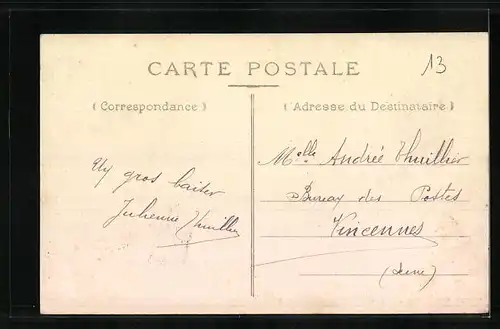 CARTE POSTALE
13
( Correspondance )
( Adresse du Destinataire )
Un gros baiser
Julienne Thuillier
Melle Andrée Thuillier
Bureau des Postes
Vincennes
(Seine)